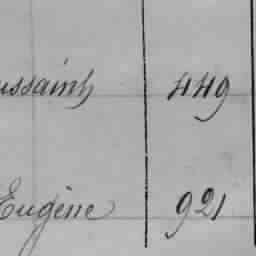 ussaint 449
Eugène 921